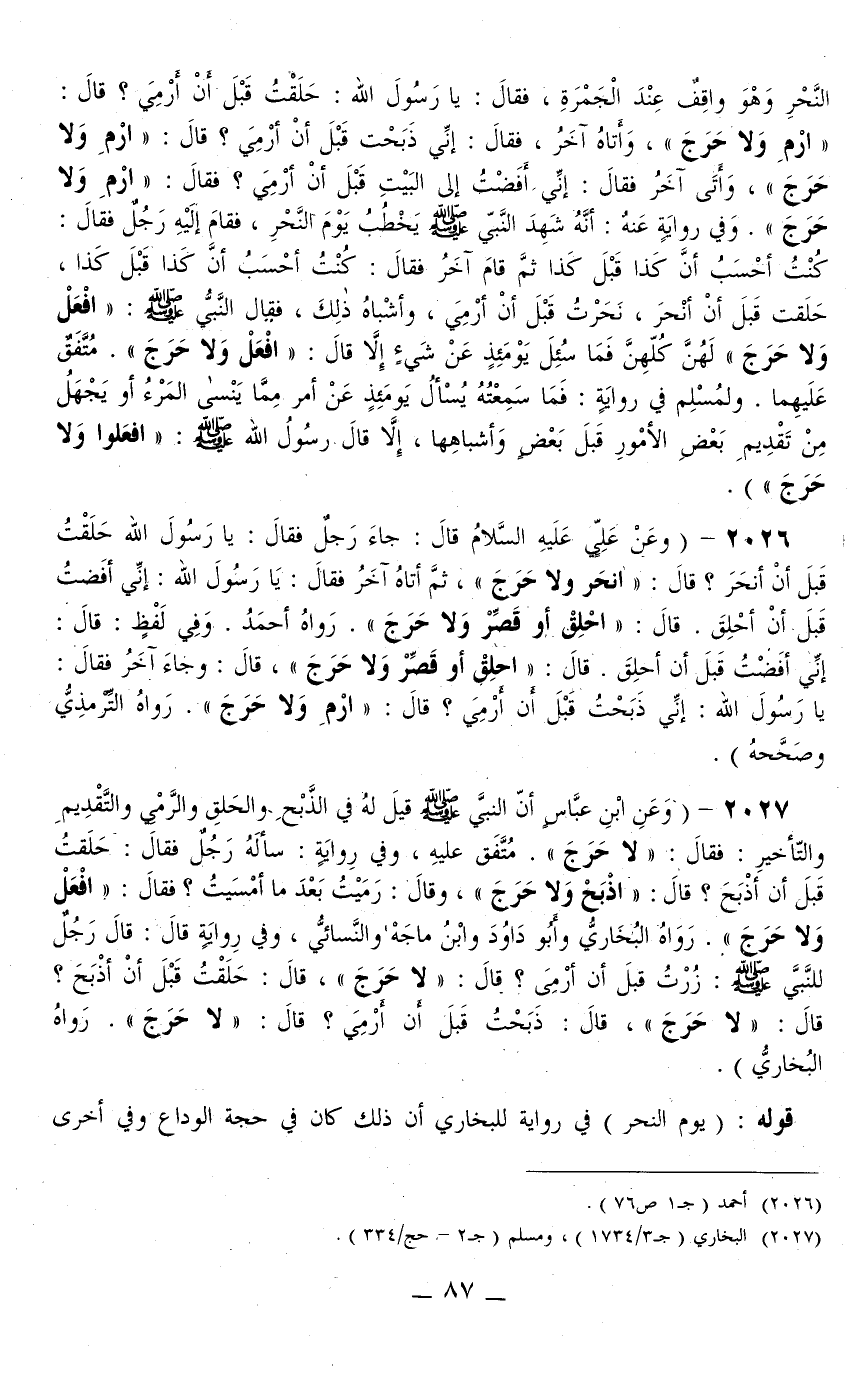 النَّحْرِ وَهْوَ واقِفٌ عِنْدَ الْجَمْرَةِ ، فقالَ : يا رَسُولَ الله : حَلَقْتُ قَبْلَ أَنْ أَرْمِيَ ؟ قالَ :
« ارْمِ وَلا حَرَجَ » ، وَأَتاهُ آخَرُ ، فقالَ : إنِّي ذَبَحْت قَبْلَ أنْ أرْمِيَ ؟ قالَ : « ارْمِ وَلا
حَرَجَ » ، وَأَتَى آخَرُ فقالَ : إنِّي أَفَضْتُ إلى البَيْتِ قَبْلَ أنْ أرْمِيَ ؟ فقالَ : « ارْمِ وَلا
حَرَجَ » . وَفي روايَةٍ عَنهُ : أنَّهُ شَهِدَ النَّبيّ ﷺ يَخْطُبُ يَوْمَ النَّحْرِ ، فقامَ إلَيْهِ رَجُلٌ فقالَ :
كُنْتُ أحْسَبُ أنَّ كَذا قَبْلَ كَذا ثمَّ قامَ آخَرُ فقالَ : كُنْتُ أحْسَبُ أنَّ كَذا قَبْلَ كَذا ،
حَلَقت قَبلَ أنْ أنْحرَ ، نَحَرْتُ قَبْلَ أنْ أرْمِيَ ، وأشْباهُ ذٰلِكَ ، فقال النَّبيُّ ﷺ : « افْعَلْ
وَلا حَرَجَ » لَهُنَّ كُلّهِنَّ فَمَا سُئِلَ يَوْمَئِذٍ عَنْ شَيءٍ إلَّا قالَ : « افْعَلْ وَلا حَرَجَ » . مُتَّفَقٌ
عَلَيهِما . ولمُسْلِم في روايَةٍ : فَمَا سَمِعْتُهُ يُسْألُ يَومَئِذٍ عَنْ أمر مِمَّا يَنْسىٰ المَرْءُ أو يَجْهَلُ
مِنْ تَقْدِيمِ بَعْضِ الأمْورِ قَبلَ بَعْضٍ وَأشباهِها ، إلَّا قالَ رسُولُ الله ﷺ : « افعَلوا وَلا
حَرَجَ » ) .
٢٠٢٦ – ( وعَنْ عَلِيّ عَلَيهِ السَّلامُ قالَ : جاءَ رَجلٌ فقالَ : يا رَسُولَ الله حَلَقْتُ
قَبلَ أنْ أنحَرَ ؟ قالَ : « انحَر ولا حَرَجَ » ، ثمَّ أتاهُ آخَرُ فقالَ : يَا رَسُولَ الله : إنِّي أفَضتُ
قَبلَ أنْ أحْلِقَ . قالَ : « احْلِقْ أو قَصِّرْ وَلا حَرَجَ » . رَواهُ أحمَدُ . وَفِي لَفْظٍ : قالَ :
إنِّي أفَضْتُ قَبلَ أن أحلِقَ . قالَ : « احلِقْ أو قَصِّرْ وَلا حَرَجَ » ، قالَ : وجاءَ آخَرُ فقالَ :
يا رَسُولَ الله : إنِّي ذَبَحْتُ قَبْلَ أَن أَرْمِيَ ؟ قالَ : « ارْمِ وَلا حَرَجَ » . رَواهُ التِّرْمذِيُّ
وصَحَّحهُ ) .
٢٠٢٧ – ( وَعَنِ ابْنِ عبَّاسٍ أنّ النبيَّ ﷺ قيلَ لهُ في الذَّبْحِ والحَلقِ والرَّمْي والتَّقْدِيمِ
والتّأخيرِ : فقالَ : « لا حَرَجَ » . مُتَّفَق عليهِ ، وفي رِوايَةٍ : سألَهُ رَجُلٌ فقالَ : حَلَقتُ
قَبلَ أن أذْبَحَ ؟ قالَ : « اذْبَحْ وَلا حَرَجَ » ، وقالَ : رَمَيْتُ بَعْدَ ما أمْسَيتُ ؟ فقالَ : « افْعَلْ
وَلا حَرَجَ » . رَوَاهُ البُخَاريُّ وأَبُو دَاوُدَ وابْنُ ماجَهْ والنَّسائيُّ ، وفي رِوايَةٍ قالَ : قالَ رَجُلٌ
للنَّبيَّ ﷺ : زُرْتُ قبلَ أن أرْمِيَ ؟ قالَ : « لا حَرَجَ » ، قالَ : حَلَقْتُ قَبْلَ أنْ أذْبَحَ ؟
قالَ : « لا حَرَجَ » ، قالَ : ذَبَحْتُ قَبلَ أَن أَرْمِيَ ؟ قالَ : « لا حَرَجَ » . رَواهُ
البُخاريُّ ) .
قوله : ( يوم النحر ) في رواية للبخاري أن ذلك كان في حجة الوداع وفي أخرى
(٢٠٢٦) أحمد ( جـ١ ص٧٦ ) .
(٢٠٢٧) البخاري ( جـ١٧٣٤/٣ ) ، ومسلم ( جـ٢ – حج/٣٣٤ ) .
– ٨٧ –